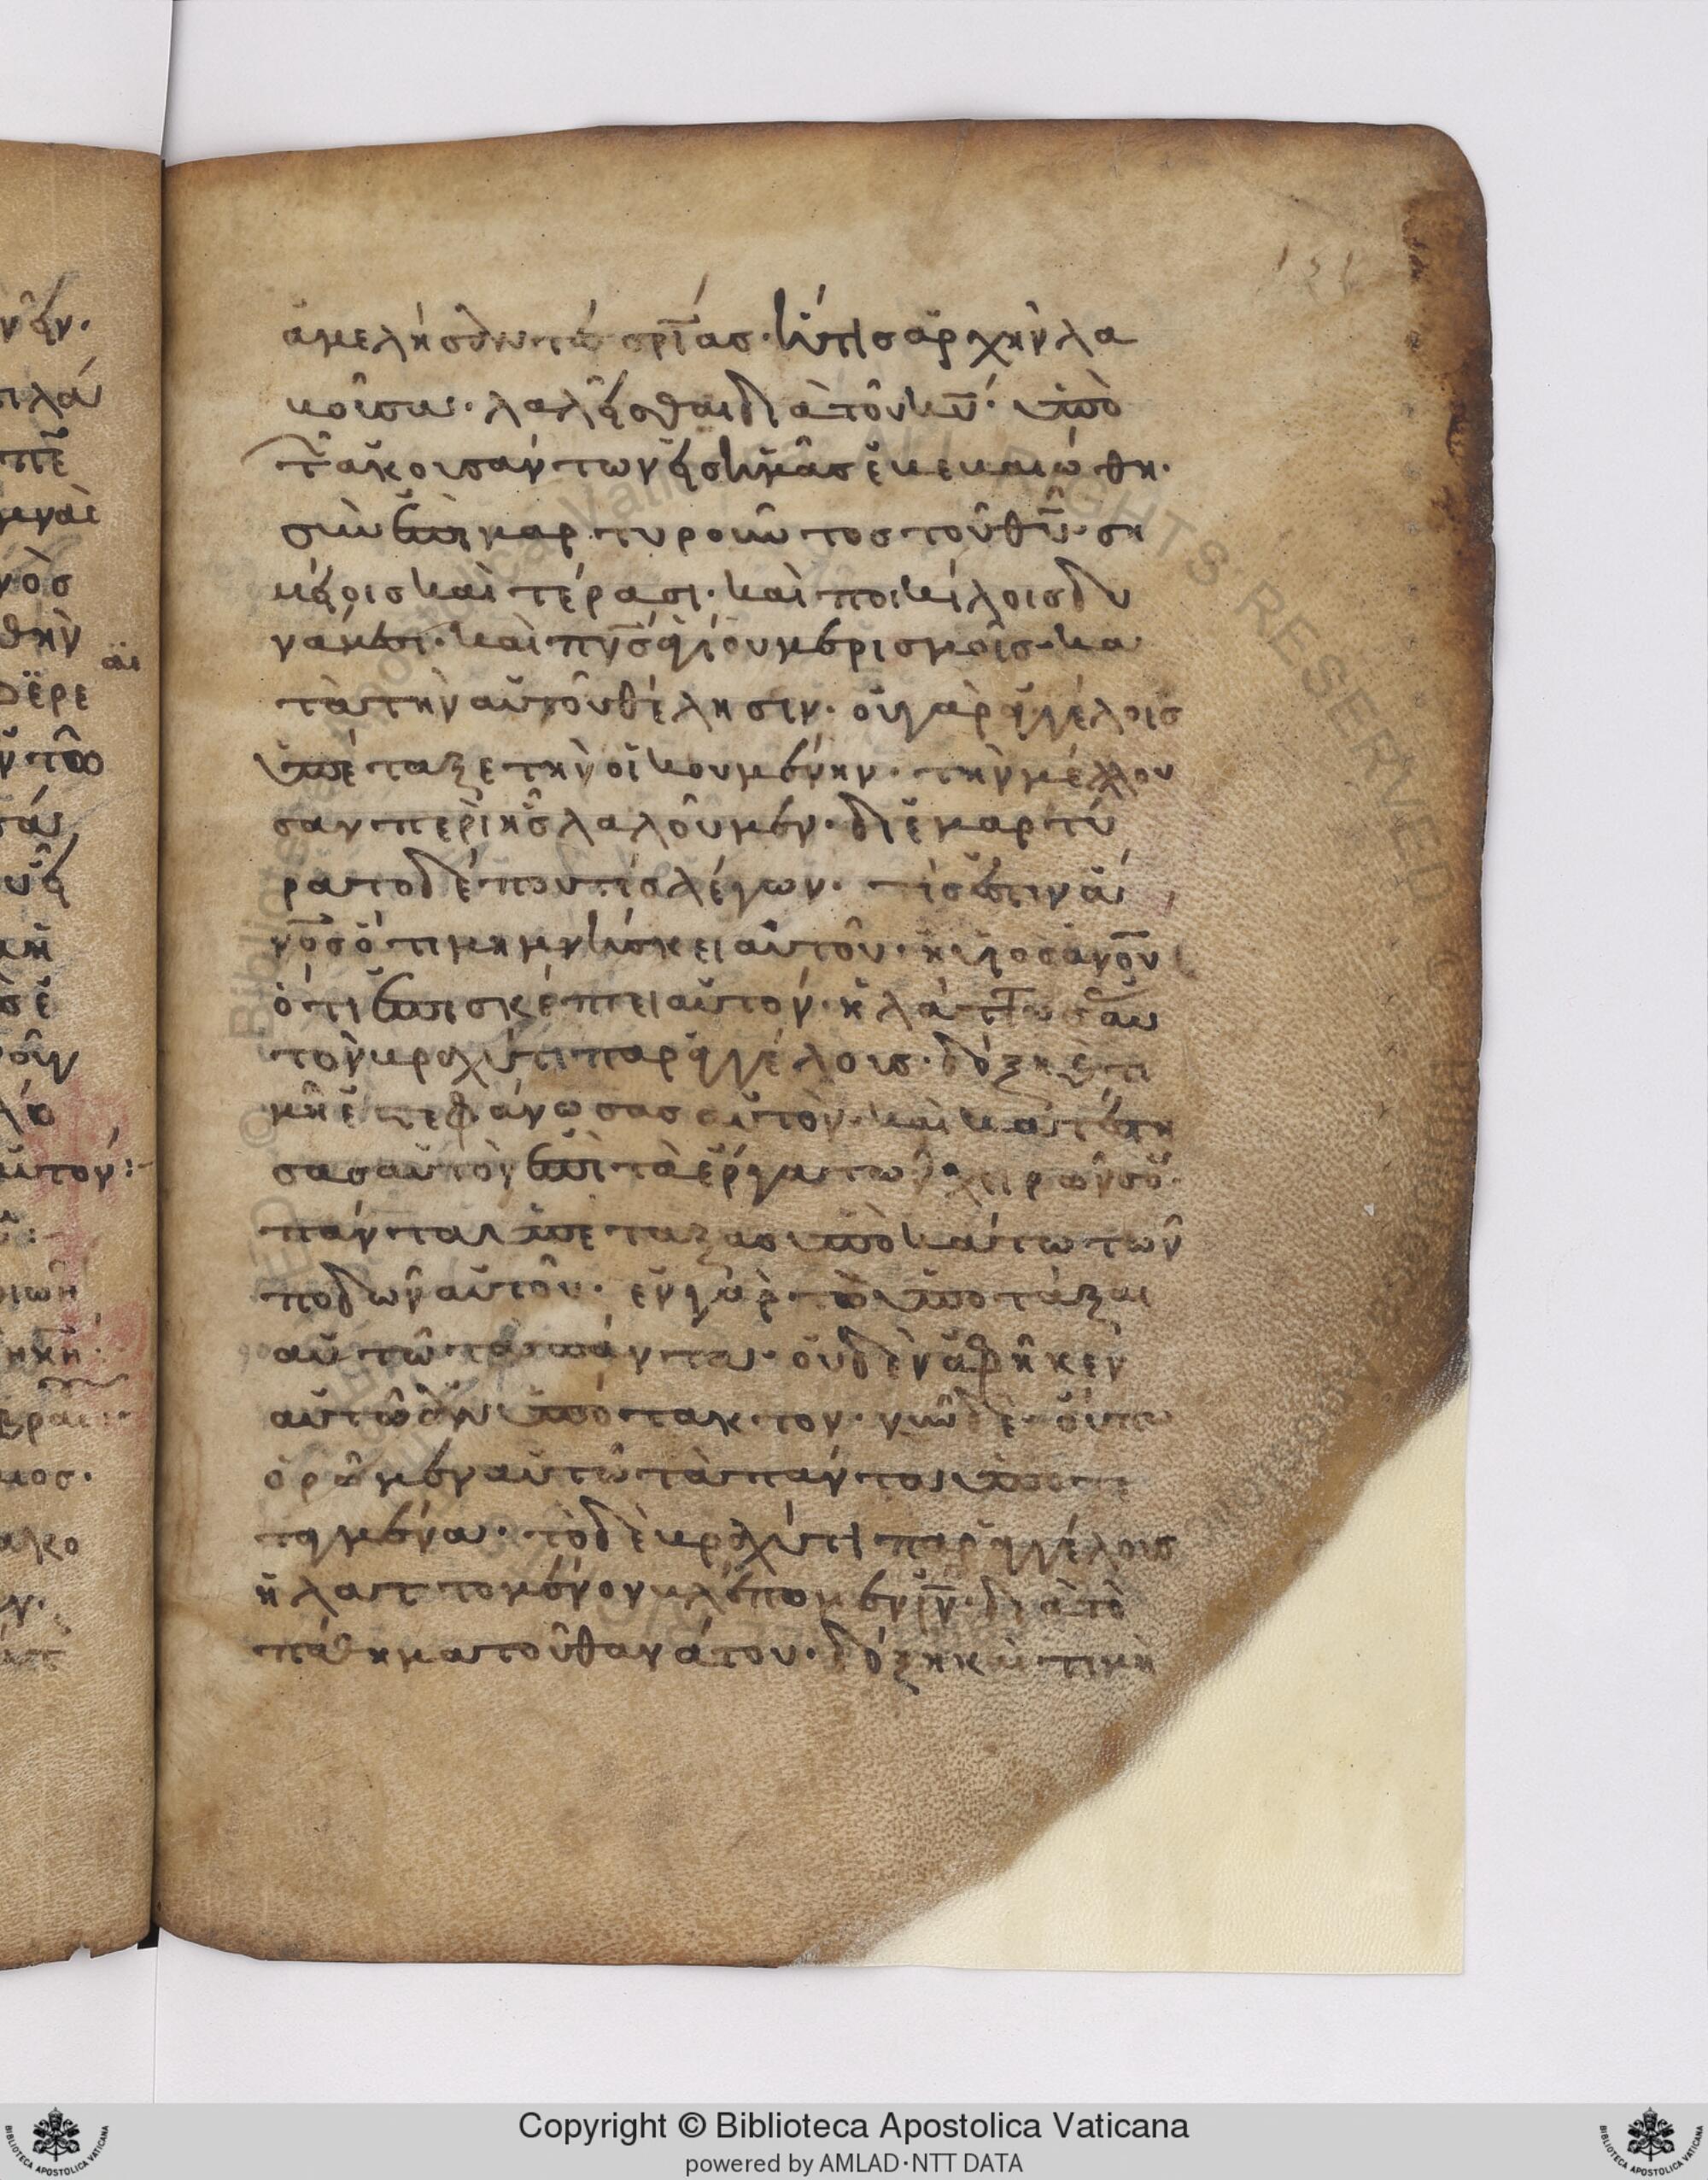 ἀμελήσαντες σρίας· ἥτις ἀρχὴν λα
βοῦσα· λαλεῖσθαι διὰ τοῦ κυ· ὑπὸ
τῶν ἀκουσάντων εἰς ἡμᾶς ἐβεβαιώθη·
συνεπιμαρτυροῦντος τοῦ θυ· ση
μείοις καὶ τέρασι· καὶ ποικίλοις δυ
νάμεσι· καὶ πνς ἁγίου μερισμοῖς· κα
τὰ τὴν αὐτοῦ θέλησιν· οὐ γὰρ ἀγγέλοις
ὑπέταξε τὴν οἰκουμένην· τὴν μέλλου
σαν περὶ ἧς λαλοῦμεν· διεμαρτύ
ρατο δέ που τίς λέγων· τί ἐστιν ἄ
νος ὅτι μιμνήσκει αὐτοῦ· ἢ υἱὸς ἀνου
ὅτι ἐπισκέπτει αὐτόν· ἠλάττωσας αὐ
τὸν βραχύ τι παρ' ἀγγέλοις· δόξη καὶ τι
μῆ ἐστεφάνωσας αὐτὸν· καὶ κατέστη
σας αὐτὸν ἐπὶ τὰ ἔργα τῶν χειρῶν σου·
πάντα ὑπέταξας ὑποκάτω τῶν
ποδῶν αὐτοῦ· ἐν γὰρ τῷ ὑποτάξαι
αὐτῶ τὰ πάντα· οὐδὲν ἀφῆκεν
αὐτῶ ἀνυπότακτον· νῦν δὲ οὔπω
ὁρῶμεν αὐτῶ τὰ πάντα ὑποτε
ταγμένα· τὸ δὲ βραχύ τι παρ' ἀγγέλοις
ἠλαττομένον βλέπομεν ιν· διὰ τὸ
πάθημα τοῦ θανάτου· δόξη καὶ τιμῆ
Copyright © Biblioteca Apostolica Vaticana
powered by AMLAD·NTT DATA